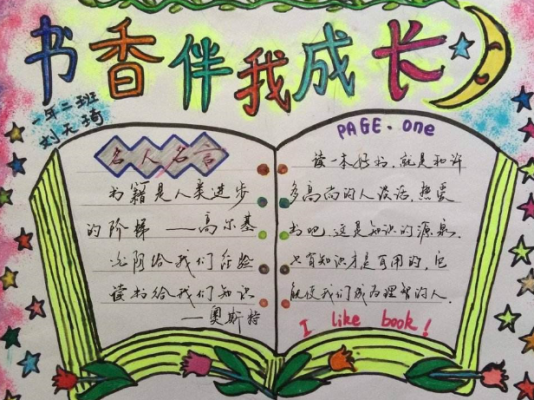 书香伴我成长
一年二班
刘天琦
名人名言
书籍是人类进步
的阶梯 ——高尔基
光阴给我们经验
读书给我们知识
——奥斯特
PAGE. one
读一本好书,就是和许
多高尚的人谈话,热爱
书吧,这是知识的源泉,
只有知识才是有用的,它
能使我们成为理智的人.
I like book!